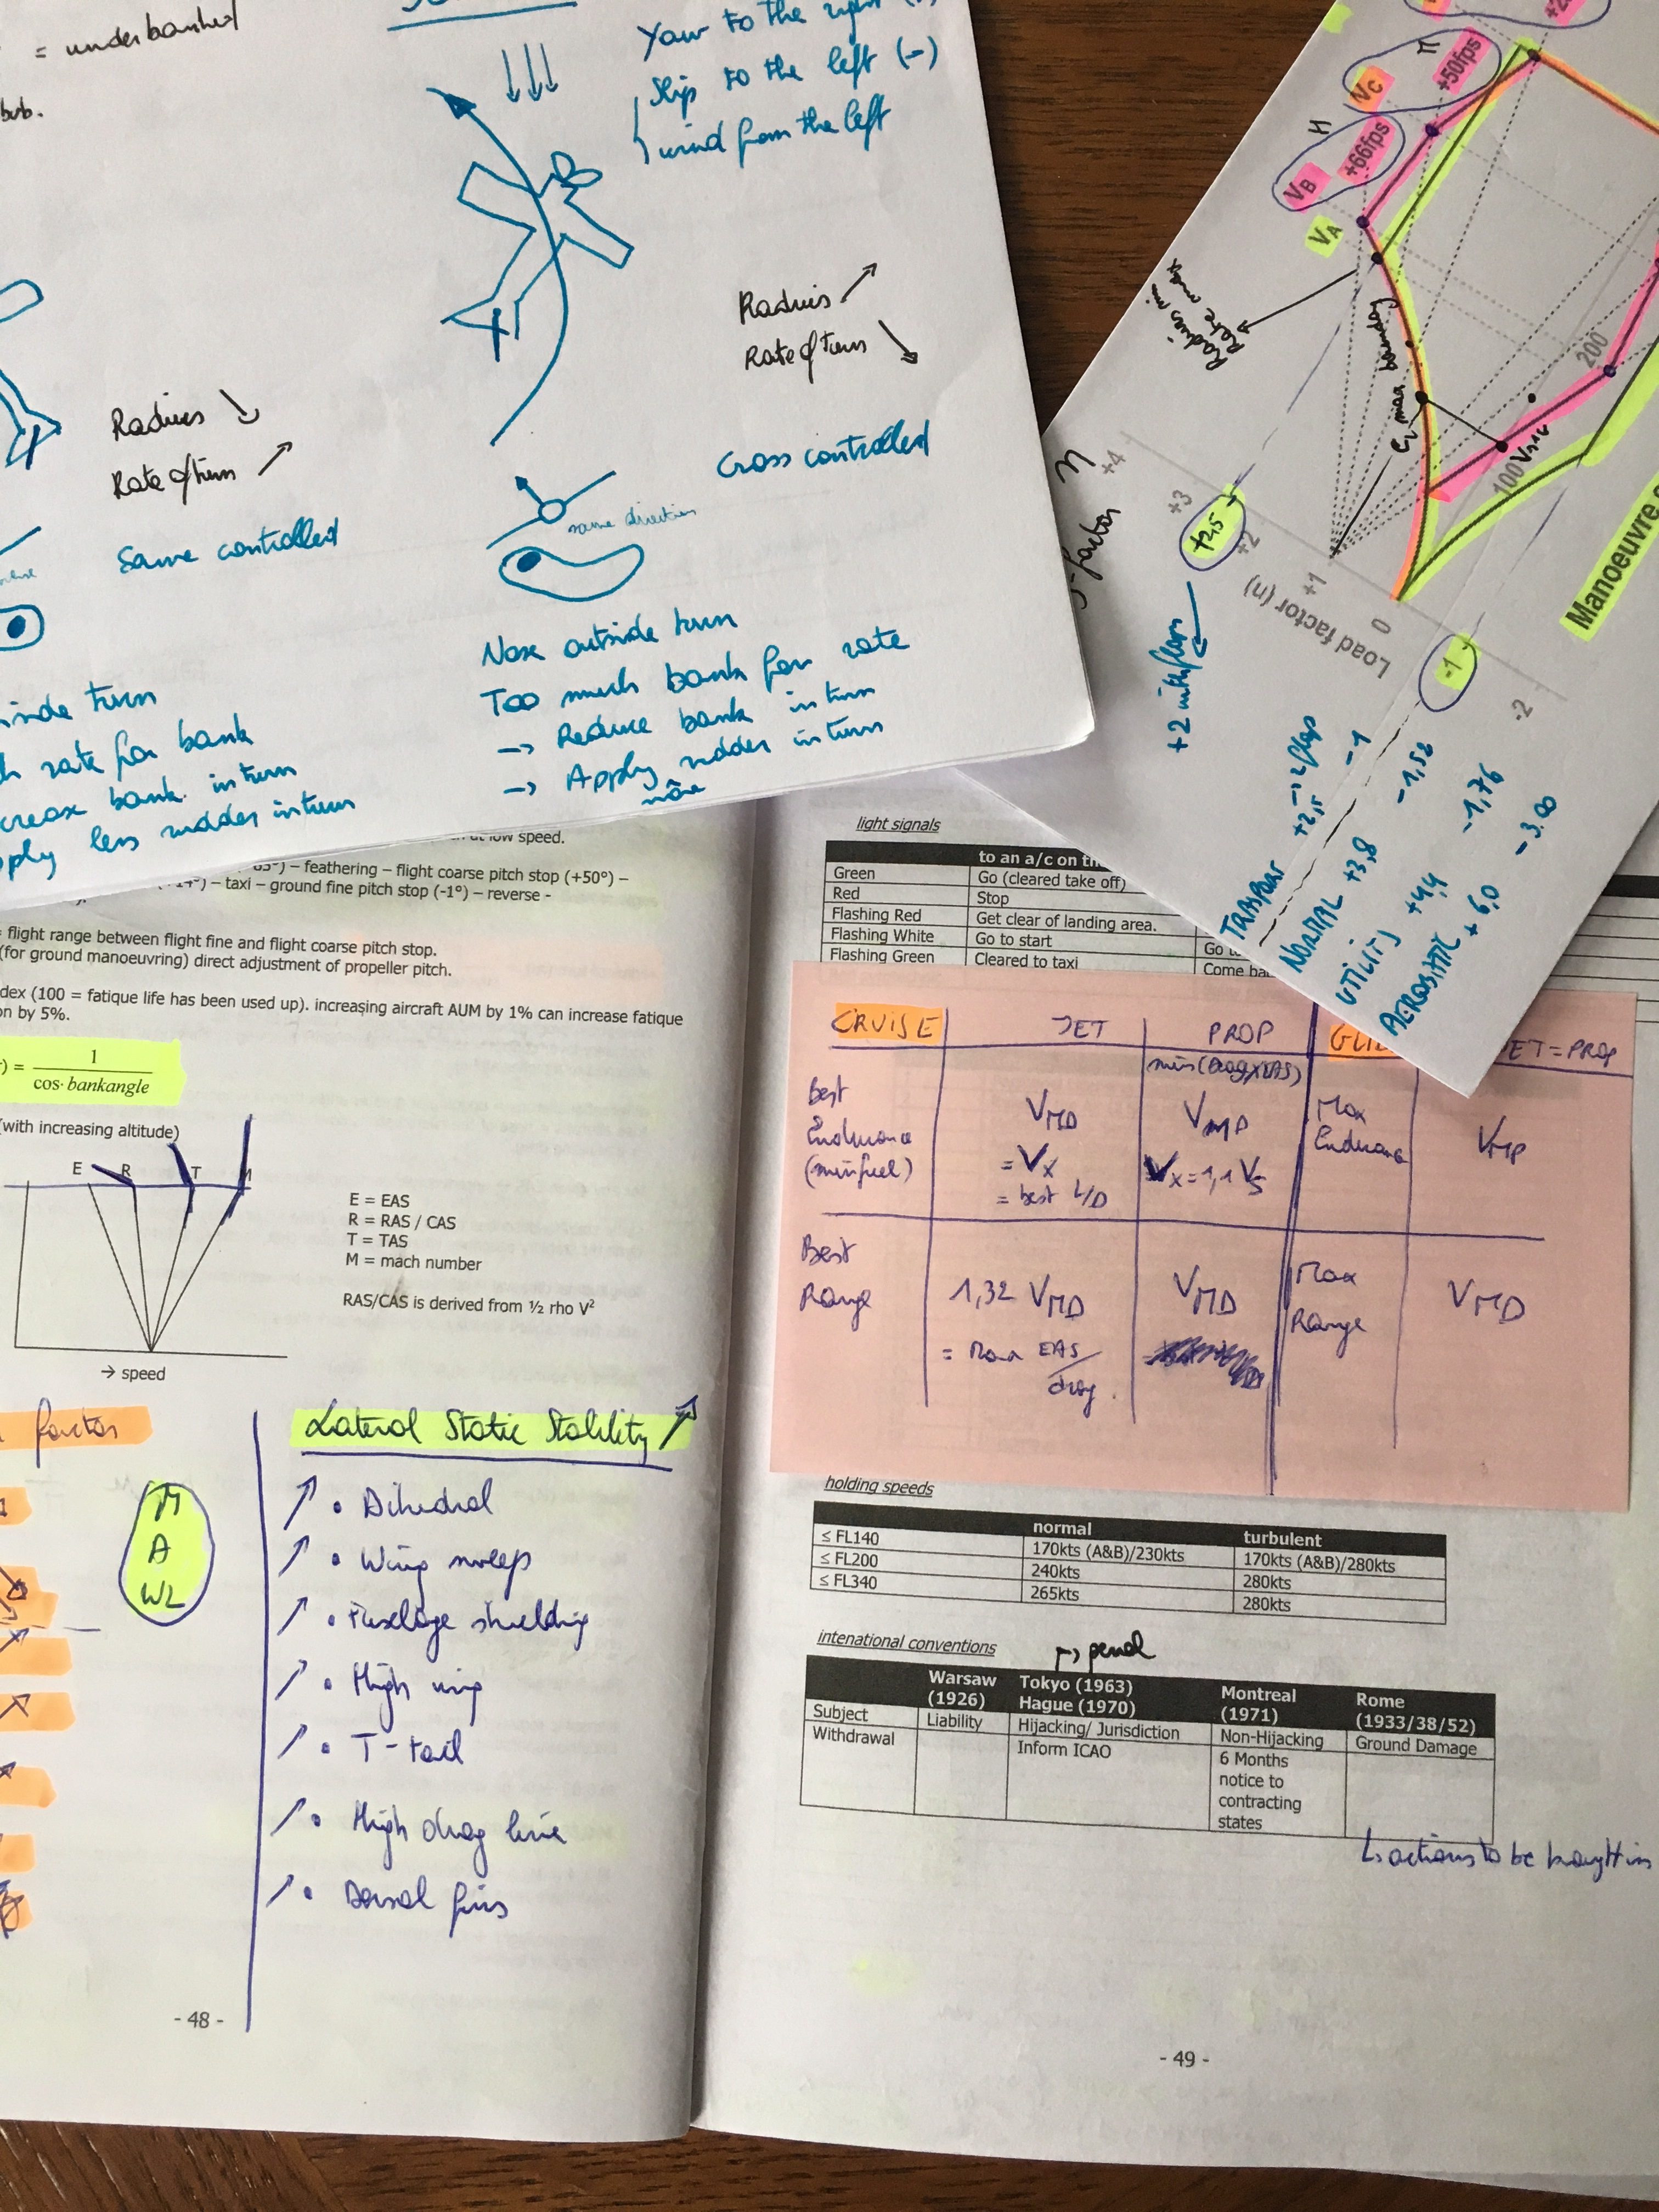 = underbanked
Yaw to the right
Slip to the left (-)
wind from the left
Radius ↗
Rate of turn ↘
Radius ↘
Rate of turn ↗
Cross controlled
same direction
Same controlled
Nose outside turn
Too much bank for rate
→ Reduce bank in turn
→ Apply rudder in turn
more
inside turn
rate for bank
bank in turn
less rudder in turn
+50fps
VC
+66fps
VB
VA
Radius min
Rate max
CL max boundary
200
100
VS1g
+4
+3
+2,5
+2
+1
0
-1
-2
Load factor (n)
factor n
Manoeuvre
+2 with flaps
TRANSPORT +2,5 → 2 flap -1
NORMAL +3,8 -1,52
UTILITY +4,4 -1,76
AEROBATIC +6,0 -3.00
low speed.
– feathering – flight coarse pitch stop (+50°) –
– taxi – ground fine pitch stop (-1°) – reverse -
= flight range between flight fine and flight coarse pitch stop.
(for ground manoeuvring) direct adjustment of propeller pitch.
dex (100 = fatique life has been used up). increasing aircraft AUM by 1% can increase fatique
on by 5%.
= 1
cos· bankangle
(with increasing altitude)
E R T M
E = EAS
R = RAS / CAS
T = TAS
M = mach number
RAS/CAS is derived from ½ rho V²
→ speed
factor
M
A
WL
Lateral Static Stability ↗
↗ • Dihedral
↗ • Wing sweep
↗ • Fuselage shielding
↗ • High wing
↗ • T-tail
↗ • High drag line
↗ • Dorsal fins
- 48 -
light signals
to an a/c on th
Green Go (cleared take off)
Red Stop
Flashing Red Get clear of landing area.
Flashing White Go to start
Flashing Green Cleared to taxi Come ba
CRUISE JET PROP JET = PROP
min (Drag x EAS)
Best Endurance (min fuel) VMD = Vx = best L/D VMP Vx = 1,1 VS Max Endurance VMP
Best Range 1,32 VMD = Max EAS/drag. VMD Max Range VMD
holding speeds
normal turbulent
≤ FL140 170kts (A&B)/230kts 170kts (A&B)/280kts
≤ FL200 240kts 280kts
≤ FL340 265kts 280kts
intenational conventions
→ penal
Warsaw (1926) Tokyo (1963) Hague (1970) Montreal (1971) Rome (1933/38/52)
Subject Liability Hijacking/ Jurisdiction Non-Hijacking Ground Damage
Withdrawal Inform ICAO 6 Months
notice to
contracting
states
actions to be brought in
- 49 -